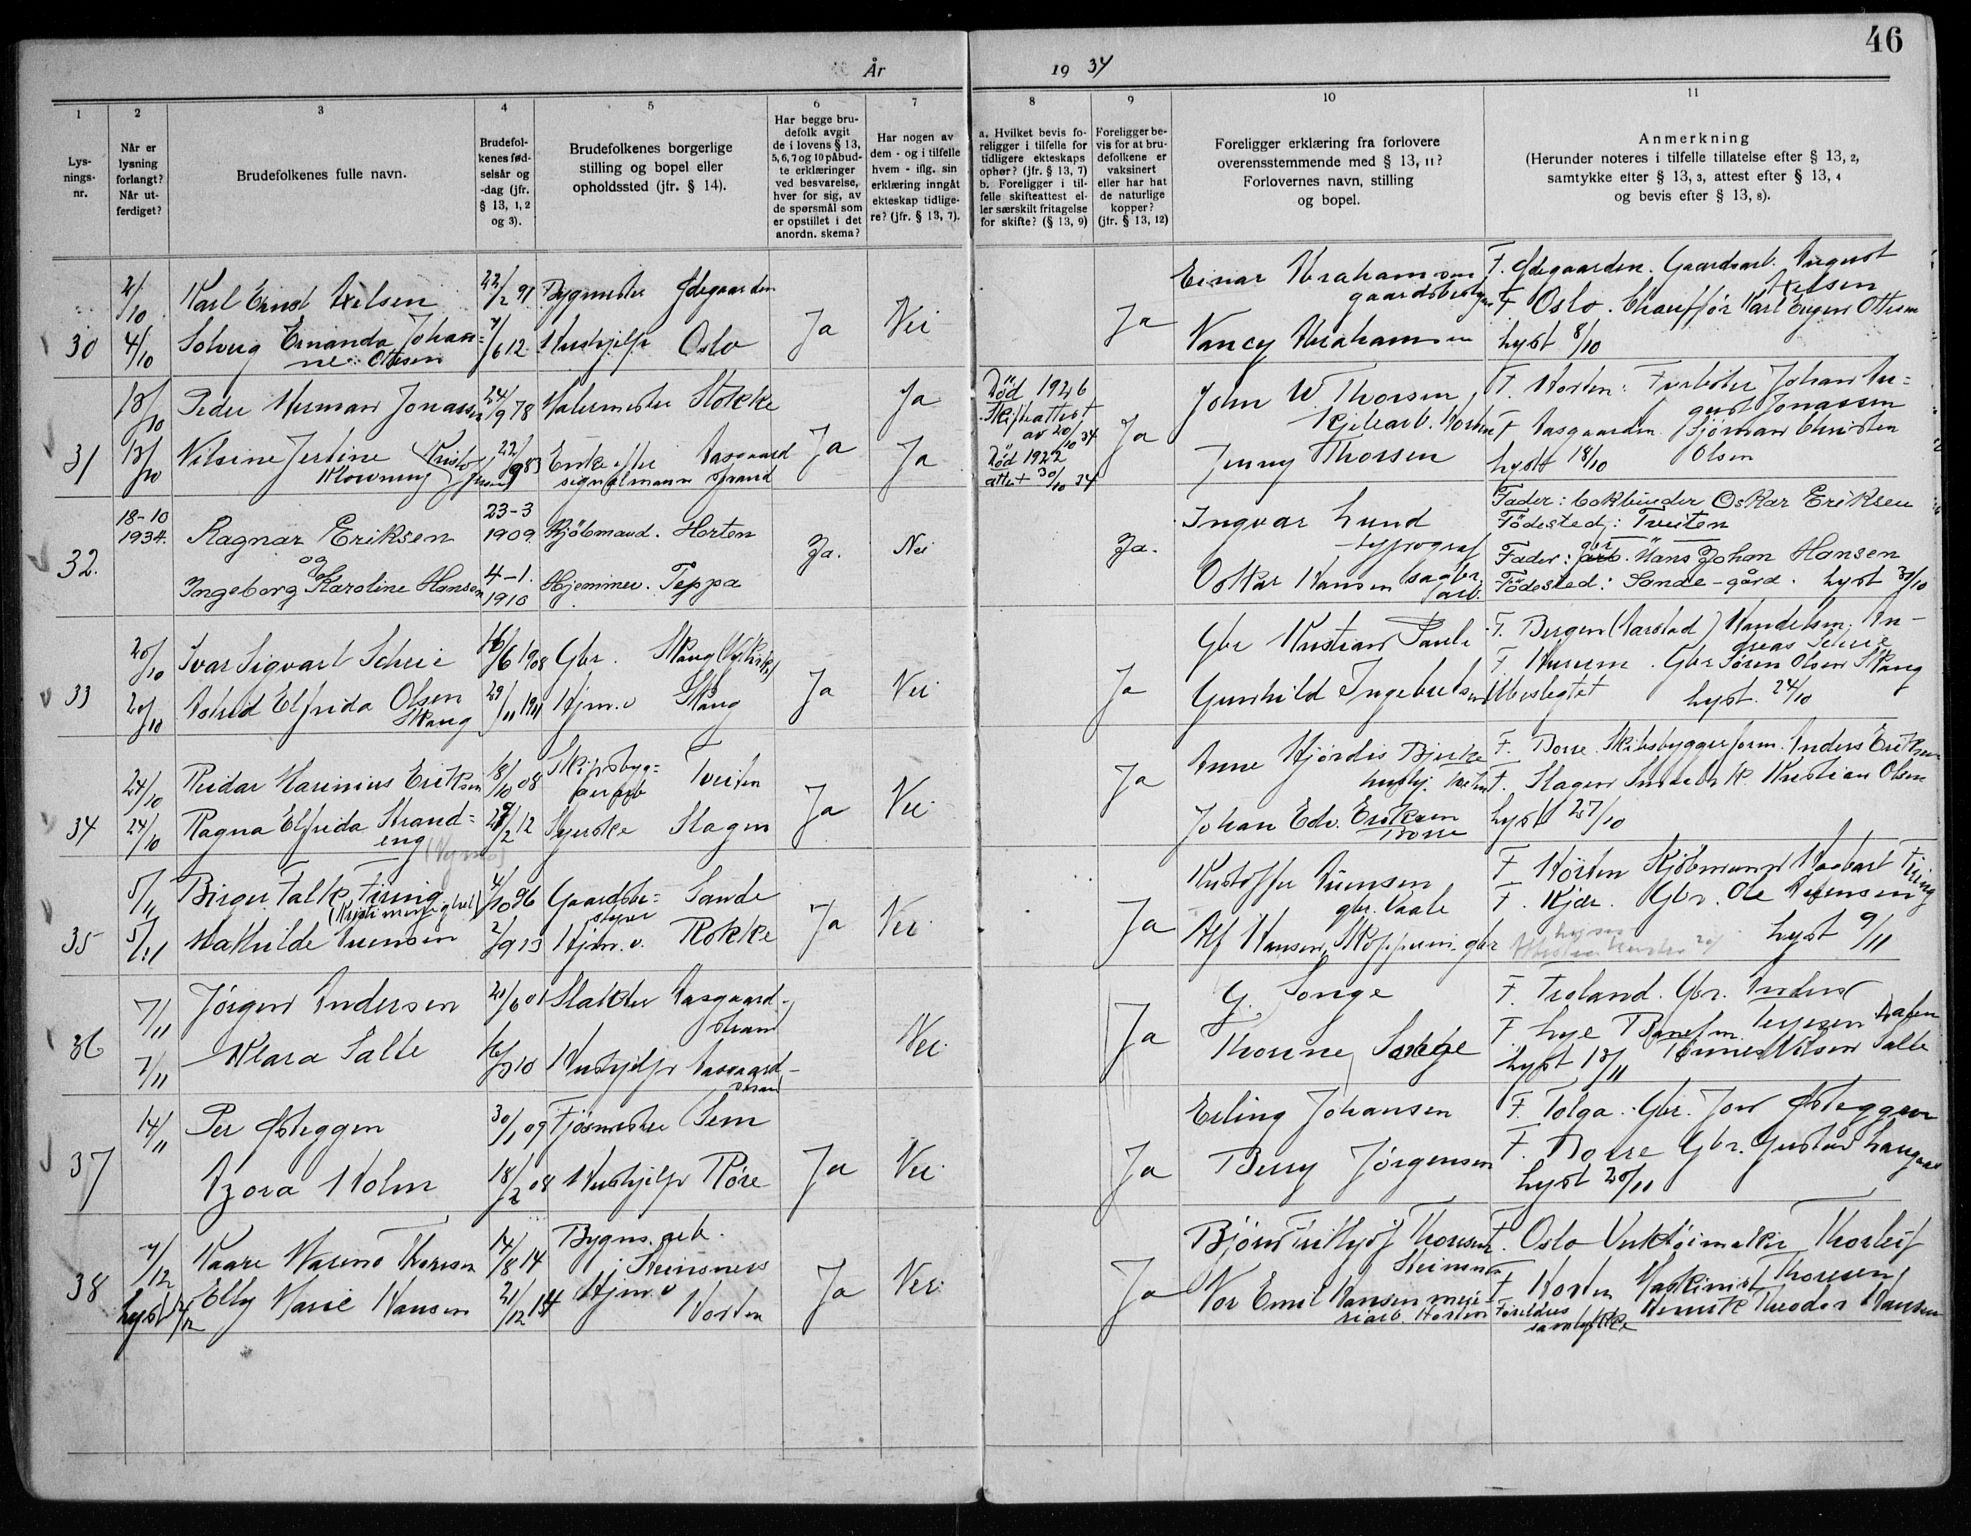 46
År 1934
1
2
3
4
5
6
7
8
9
10
11
Lys-
nings-
nr.
Når er
lysning
forlangt?
Når ut-
ferdiget?
Brudefolkenes fulle navn.
Brudefol-
kenes fød-
selsår og
-dag (jfr.
§ 13, 1, 2
og 3).
Brudefolkenes borgerlige
stilling og bopel eller
opholdssted (jfr. § 14).
Har begge bru-
defolk avgit
de i lovens § 13,
5, 6, 7 og 10 påbud-
te erklæringer
ved besvarelse,
hver for sig, av
de spørsmål som
er opstillet i det
anordn. skema?
Har nogen av
dem - og i tilfelle
hvem - iflg. sin
erklæring inngått
ekteskap tidlige-
re? (jfr. § 13, 7).
a. Hvilket bevis fo-
religger i tilfelle for
tidligere ekteskaps
ophør? (jfr. § 13, 7)
b. Foreligger i til-
felle skifteattest el-
ler særskilt fritagelse
for skifte? (§ 13, 9)
Foreligger be-
vis for at bru-
defolkene er
vaksinert
eller har hat
de naturlige
kopper?
(jfr. § 13, 12)
Foreligger erklæring fra forlovere
overensstemmende med § 13, 11?
Forlovernes navn, stilling
og bopel.
Anmerkning
(Herunder noteres i tilfelle tillatelse efter § 13, 2,
samtykke efter § 13, 3, attest efter § 13, 4
og bevis efter § 13, 8).
30
2/10
4/10
Karl Ernst Axelsen
Solveig Ernanda Johan-
ne Ottesen
22/2 91
7/6 12
Bygmester Ødegaarden
Hushjelp Oslo
Ja
Nei
Ja
Einar Abrahamsen
gaardsbestyrer
Nancy Abrahamsen
F. Ødegaarden. Gaardsarb. August
Axelsen
F. Oslo. Chauffør Karl Eugen Ottesen
lyst 8/10
31
13/10
13/10
Peder Herman Jonassen
Nilsine Jestine
Klowning
24/9 78
22/9 83
Malermester Stokke
Enke efter Aasgaard
signalmann strand
Ja
Ja
Ja
Død 1926
Skifteattest
av 20/10 34
Død 1922
attest 30/10 34
Ja
John W Thorsen
Kjelearb. Horten
Jenny Thorsen
F. Horten: Fyrbøter Johan Au-
gust Jonassen
F Aasgaarden Bjørman Christen
Olsen
lyst 18/10
32.
18-10
1934.
Ragnar Eriksen
og
Ingeborg Karoline Hansen
23-3
1909
4-1.
1910
Kjøbmand. Horten
Hjemmev. Teppa
Ja.
Nei
Ja.
Ingvar Lund
typograf
Oskar Hansen sagbr.
arb.
Fader: bokbinder Oskar Eriksen
Födested: Tveiten
gbr
Fader: arb. Hans Johan Hansen
Födested: Sande-gård. lyst 30/10
33
20/10
20/10
Ivar Sigvart Schei
Astrid Elfrida Olsen
Skaug
16/6 1908
29/11 1911
Gbr. Skaug (Nykirke)
Hjm.v Skaug
Ja
Nei
Ja
Gbr Kristian Paule
Gunhild Ingebretsen
F. Bergen (Aarstad) Handelsm. An-
dreas Schei
F. Hurum. Gbr Søren Olsen Skaug
Ubeslegtet lyst. 24/10
34
24/10
24/10
Reidar Marinius Eriksen
Ragna Elfrida Strand-
eng
18/10 08
29/2 12
Skipsbyg-
gerarb Tveiten
Syerske Slagen
Ja
Nei
Ja
Anne Hjørdis Bjerke
Johan Edv. Eriksen
Borre
F. Borre. Skibsbyggerform. Anders Eriksen
F. Slagen Småbrk. Kristian Olsen
lyst 27/10
35
5/11
5/11
Birger Falk Firing
Mathilde Svensen
4/10 96
2/9 13
Gaardsbe- Sande
styrer
Hjm.v. Rokke
Ja
Nei
Ja
Kristoffer Svensen
gbr. Vaale
Alf Hansen, Skoppum. gbr
F. Horten Kjøbmann Haabart Firing
F. Kjær. Gbr. Ole Svensen
lyst 9/11
36
7/11
7/11
Jørgen Andersen
Klara Salte
21/6 01
Slakter Aasgaard-
strand
Hushjelp Aasgaard-
strand
Nei
Ja
G. Songe
Thorine Songe
F. Froland. Gbr. Anders
F. Lye Banefm.
lyst 13/11 Tønnes Nilsen Salte
37
14/11
Per Østeggen
Azora Holm
30/1 09
18/2 08
Fjøsmester Sem
Hushjelp Røre
Ja
Nei
Ja
Erling Johansen
Berry Jørgensen
F. Tolga. Gbr. Jon Østeggen
F. Borre Gbr. Gustav Langaas
lyst 20/11
38
4/12
lyst
Kaare Marino Thoresen
Elly Marie Hansen
14/8 14
21/12 14
Bygns. arb.
Steinsnes
Hjm.v
Horten
Ja
Nei
Ja
Bjørn Frithjof Thoresen
Steinsnes
Nor Emil Hansen mei-
eriarb. Horten
F. Oslo Verktøimaker Thorleif
Thoresen
F Horten Maskinist
Henrik Theodor Hansen
Foreldres
samtykke